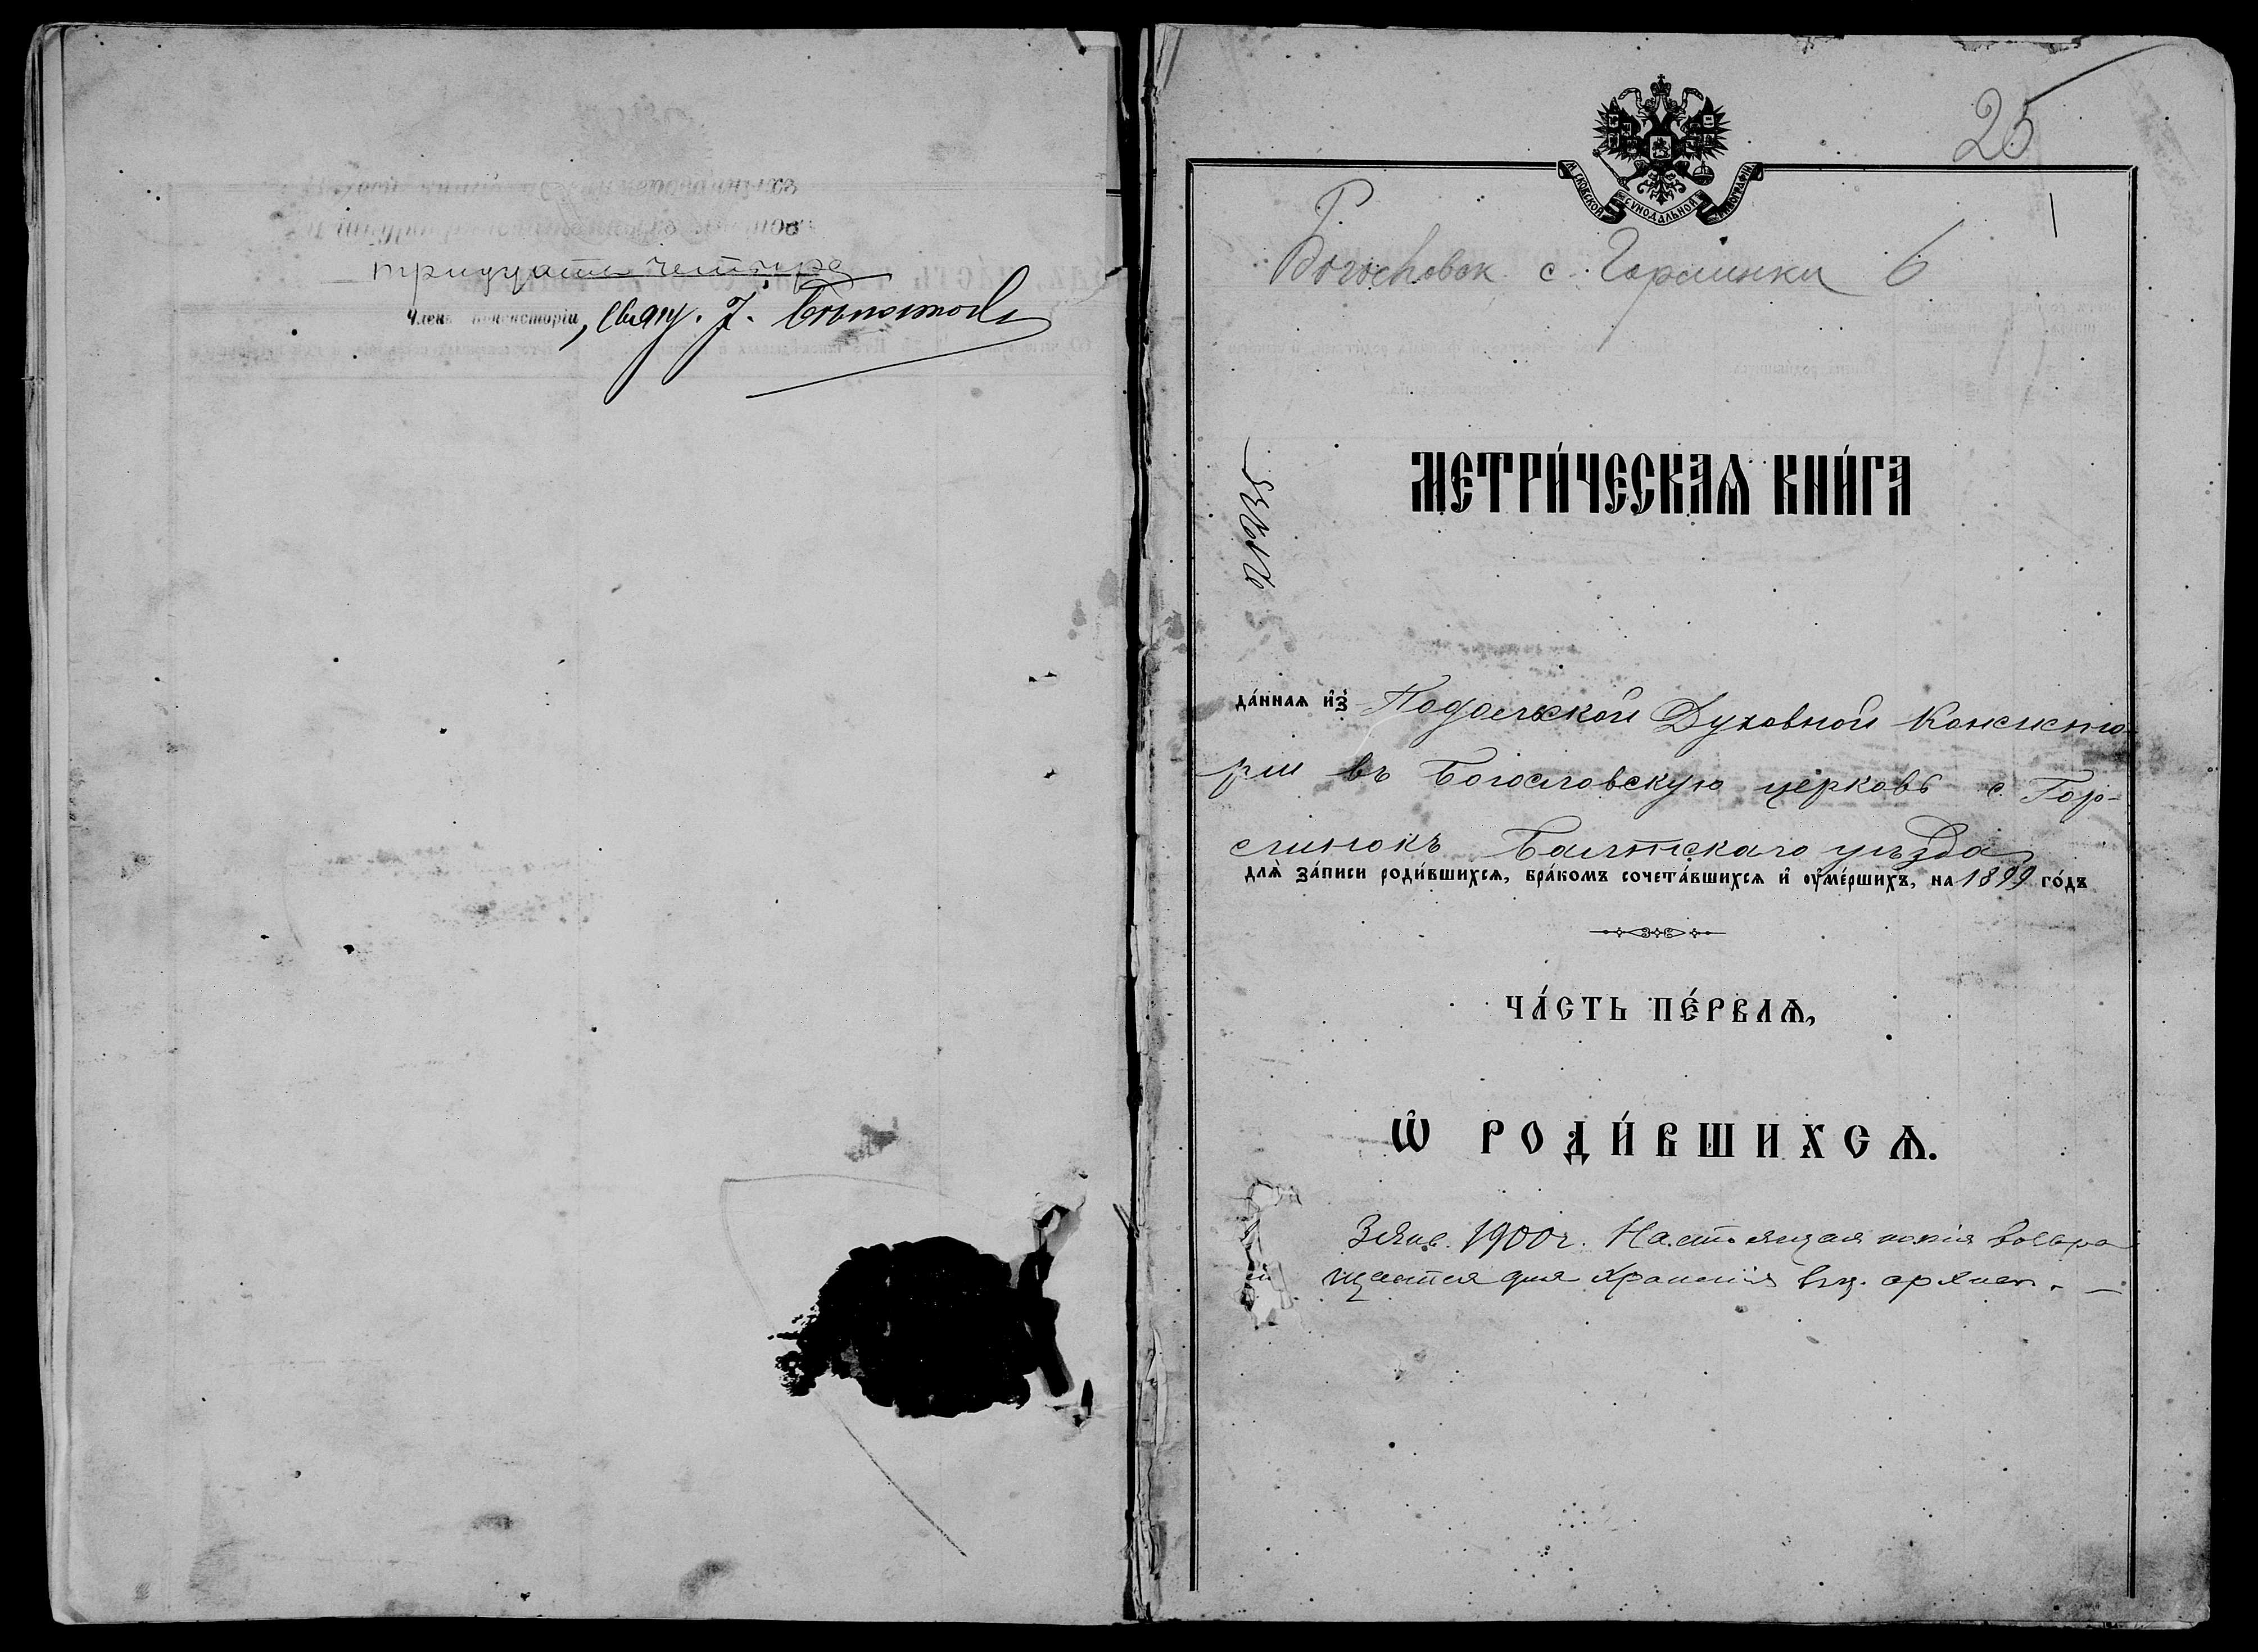 тридцать четыре
Членъ Консисторіи, свящ. І.
25
1
М. СКОВСКОЙ СѴНОДАЛЬНОЙ ТИПОГРАФІИ
Р.
Богословск с. Горлинки 6
МЕТРИ́ЧЕСКАѦ КНИ́ГА
да́ннаѧ и҆з̾ Подольской Духовной Консисто-
ріи въ Богословскую церковь с. Гор-
слинокъ Балтскаго уѣзда
для̀ за́писи роди́вшихсѧ, бра́комъ сочета́вшихсѧ и҆ ᲂу҆ме́ршихъ, на 1899 го́дъ
ЧА́СТЬ ПЕ́РВАѦ,
Ѡ҆ РОДИ́ВШИХСѦ.
3 Янв. 1900 г. Настоящая копія возвра
щается для храненія въ ц. архивѣ. —